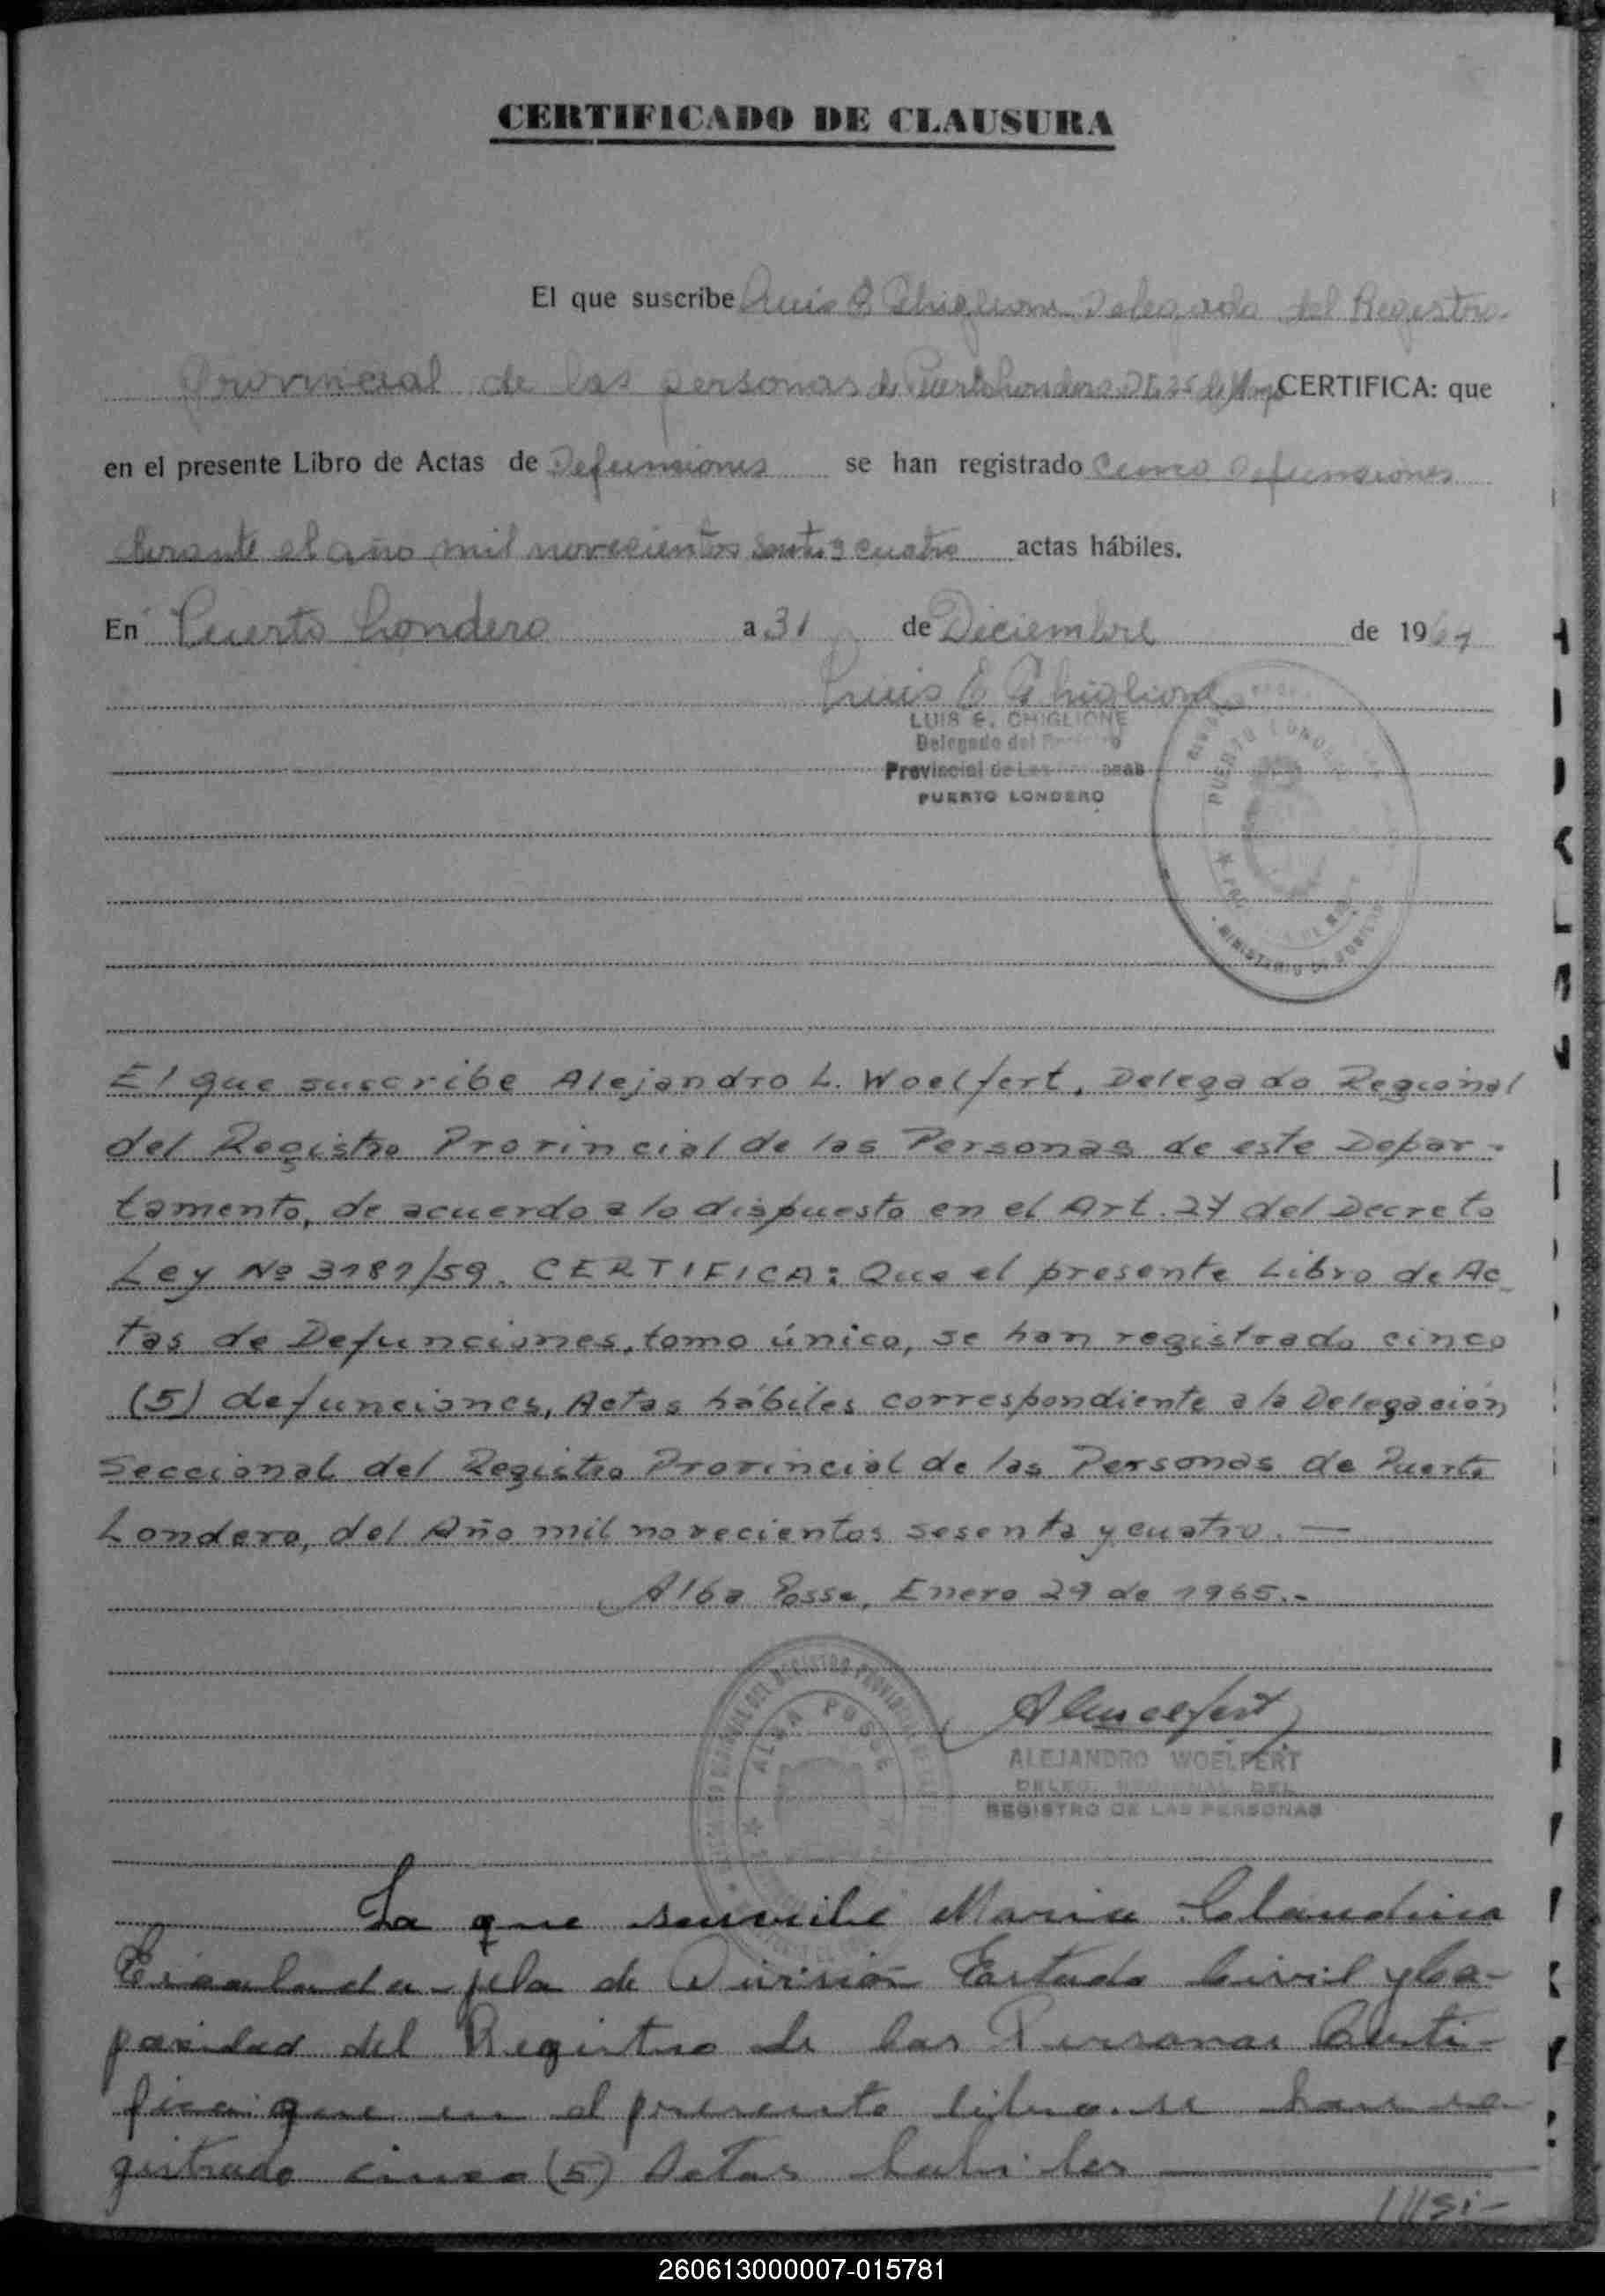 CERTIFICADO DE CLAUSURA
El que suscribe Luis E Ghiglione Delegado del Registro
Provincial de las personas de Puerto Londero Dto 25 de Mayo CERTIFICA: que
en el presente Libro de Actas de Defunsiones se han registrado Cinco Defunsiones
durante el año mil novecientos y cuatro actas hábiles.
En Puerto Londero a 31 de Diciembre de 1964
Luis E Ghiglione
LUIS E. GHIGLIONE
Delegado del
Provincial de Las
PUERTO LONDERO
PUERTO LONDERO
MINISTERIO DE GOBIERNO
El que suscribe Alejandro L. Woelfert, Delegado Regional
del Registro Provincial de las Personas de este Depar-
tamento, de acuerdo a lo dispuesto en el Art. 27 del Decreto
Ley Nº 3181/59. CERTIFICA: Que el presente Libro de Ac
tas de Defunciones, tomo único, se han registrado cinco
(5) defunciones, Actas hábiles correspondiente a la Delegación
Seccional del Registro Provincial de las Personas de Puerto
Londero, del Año mil novecientos sesenta y cuatro. —
Alba Posse, Enero 29 de 1965.-
ALBA POSSE
AWoelfert
ALEJANDRO WOELFERT
DELEG. REGIONAL DEL
REGISTRO DE LAS PERSONAS
La que suscribe Maria Claudina
jefa de Division Estado Civil y Ca-
pacidad del Registro de las Personas Certi-
fica: que en el presente libro se han re
gistrado cinco (5) Actas habiles
260613000007-015781